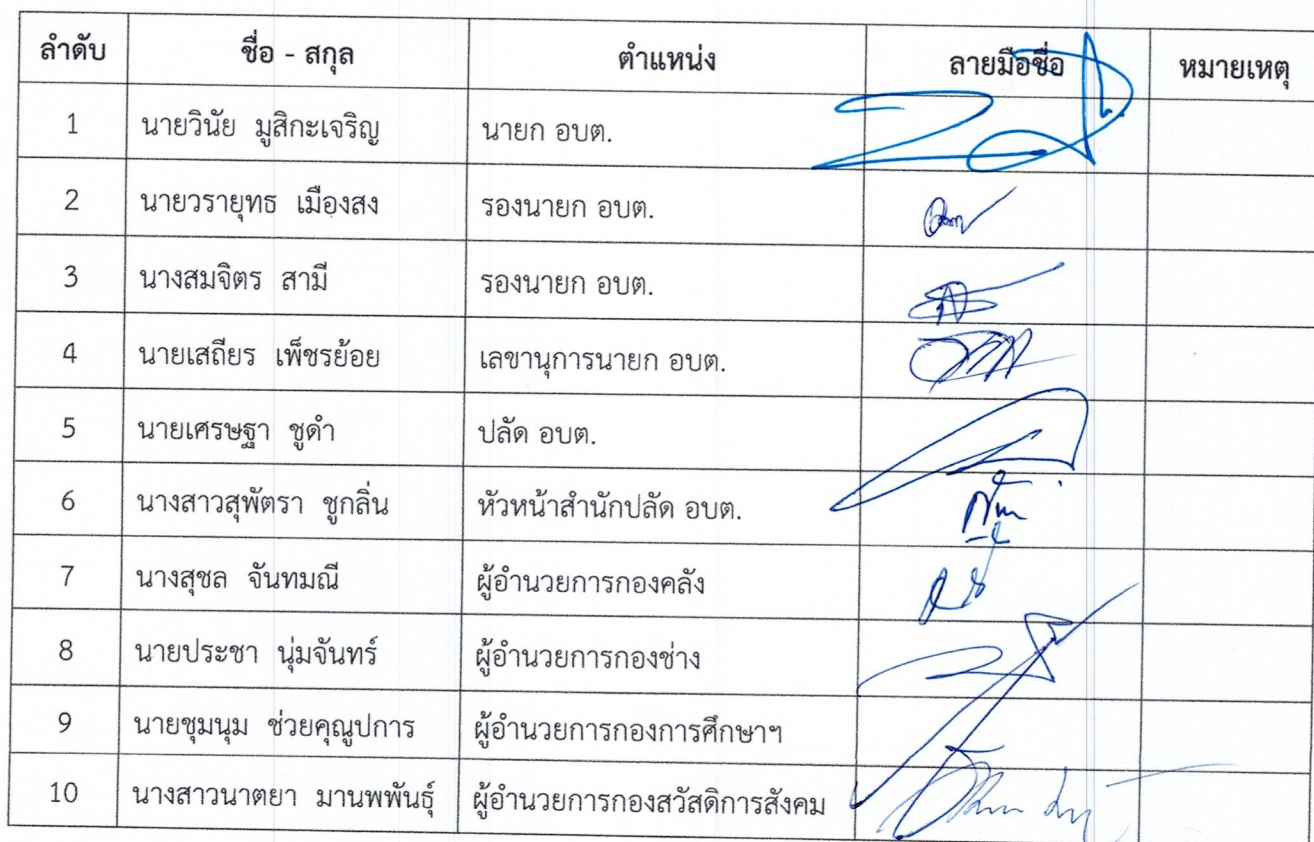 ลำดับ ชื่อ - สกุล ตำแหน่ง ลายมือชื่อ หมายเหตุ
1 นายวินัย มูสิกะเจริญ นายก อบต.
2 นายวรายุทธ เมืองสง รองนายก อบต.
3 นางสมจิตร สามี รองนายก อบต.
4 นายเสถียร เพ็ชรย้อย เลขานุการนายก อบต.
5 นายเศรษฐา ชูดำ ปลัด อบต.
6 นางสาวสุพัตรา ชูกลิ่น หัวหน้าสำนักปลัด อบต.
7 นางสุชล จันทมณี ผู้อำนวยการกองคลัง
8 นายประชา นุ่มจันทร์ ผู้อำนวยการกองช่าง
9 นายชุมนุม ช่วยคุณูปการ ผู้อำนวยการกองการศึกษาฯ
10 นางสาวนาตยา มานพพันธุ์ ผู้อำนวยการกองสวัสดิการสังคม